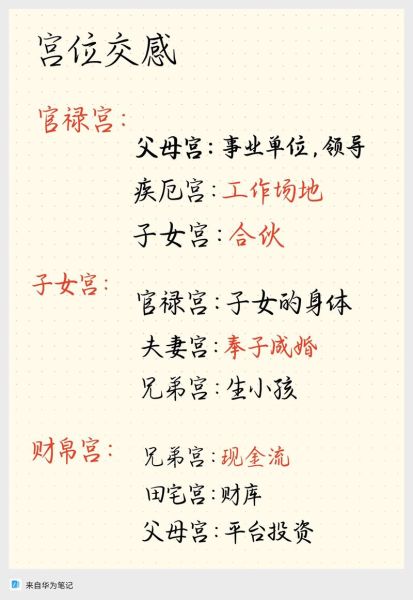 宫位交感
官禄宫：
父母宫：事业单位，领导
疾厄宫：工作场地
子女宫：合伙
子女宫：
官禄宫：子女的身体
夫妻宫：奉子成婚
兄弟宫：生小孩
财帛宫：
兄弟宫：现金流
田宅宫：财库
父母宫：平台投资
来自华为笔记